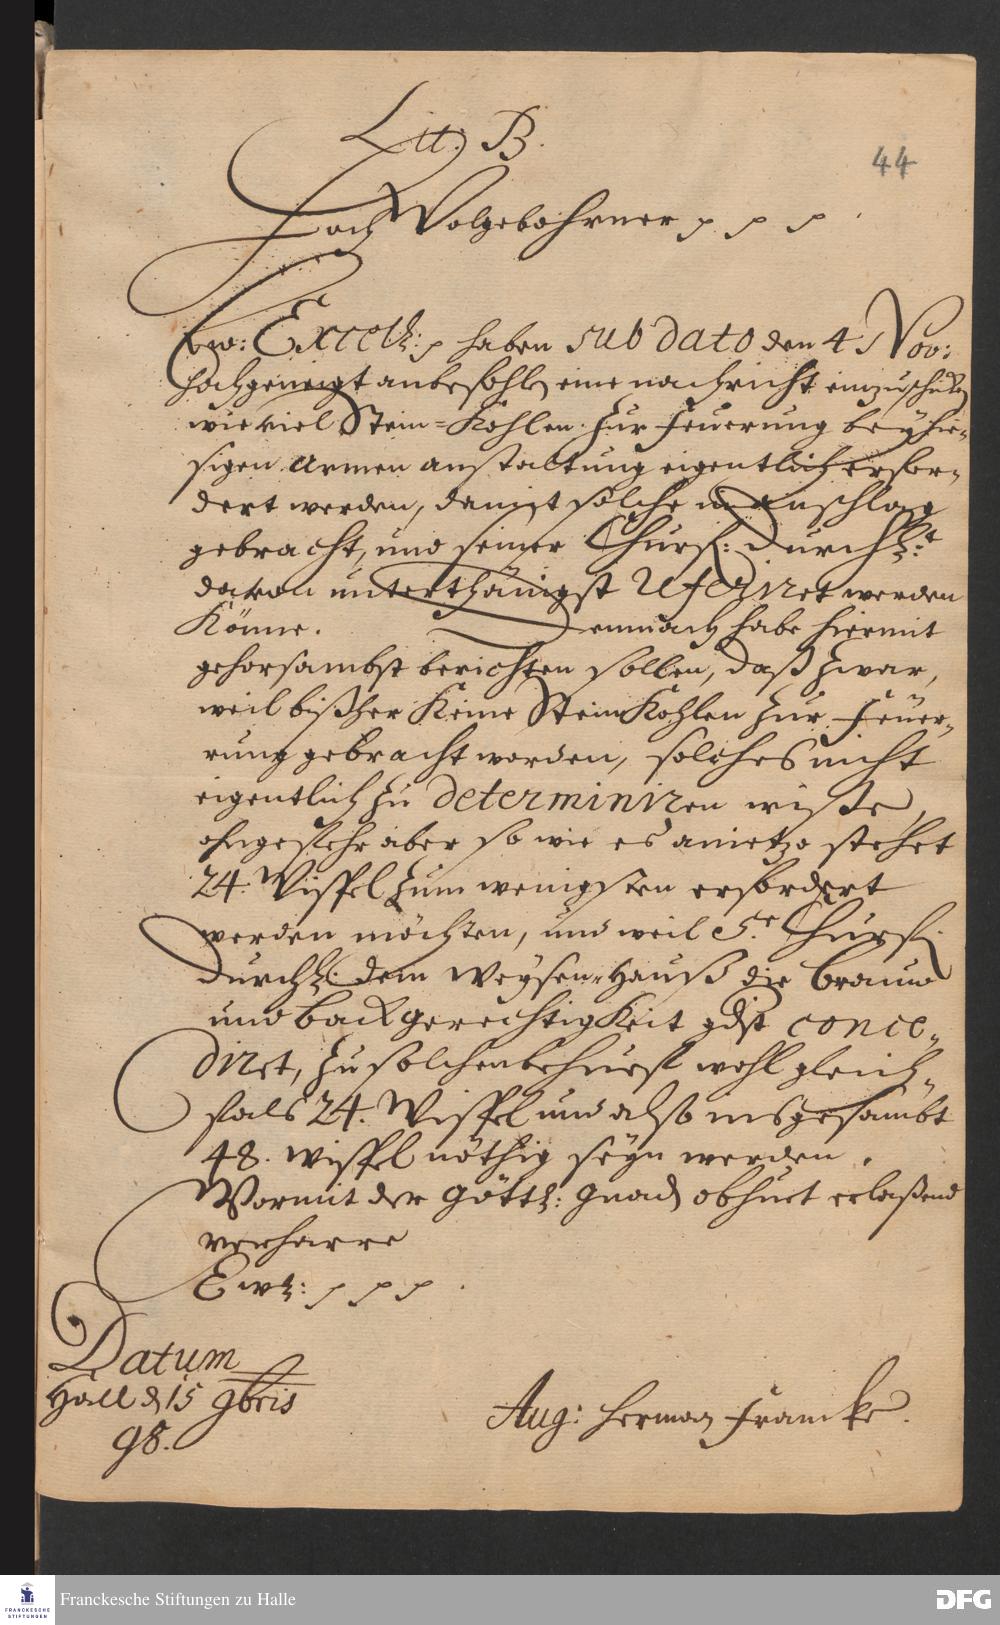 Litt. B.
44
Hoch Wolgebohrner p p p
Ew: Excellz: p haben sub dato den 4 Nov:
hochgeneigt anbefohlen eine nachricht einzuschicken
wie viel Stein-Kohlen zur feuerung bey hie-
sigen armen anstaltung eigentlich erfor-
dert werden, damit solche in anschlag
gebracht, und seiner Churf: Durchl:t
davon unterthänigst referiret werden
Könne. Demnach habe hiermit
gehorsambst berichten sollen, daß zwar,
weil bißher Keine SteinKohlen zur feuer-
rung gebracht worden, solches nicht
eigentlich zu determiniren wiste,
ohngefehr aber so wie es anietzo stehet
24. Wispel zum wenigsten erfordert
werden möchten, und weil S.e Churf.
Durchl: dem Weysen-Hauß die brau und
und backgerechtigKeit gdst conce-
diret, zu solchen behueff wohl gleich-
fals 24. Wispel und also insgesambt
48. wispel nöthig seyn werden.
Wormit der Göttl: Gnad obhuet erlaßend
verharre
Ew: p p p
Datum
Hall d 15 9bris
98.
Aug: Herman Francke.
FRANCKESCHE STIFTUNGEN
Franckesche Stiftungen zu Halle
DFG